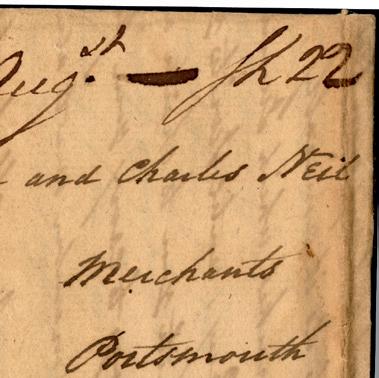 Augst — Sh 22
and Charles Neil
Merchants
Portsmouth